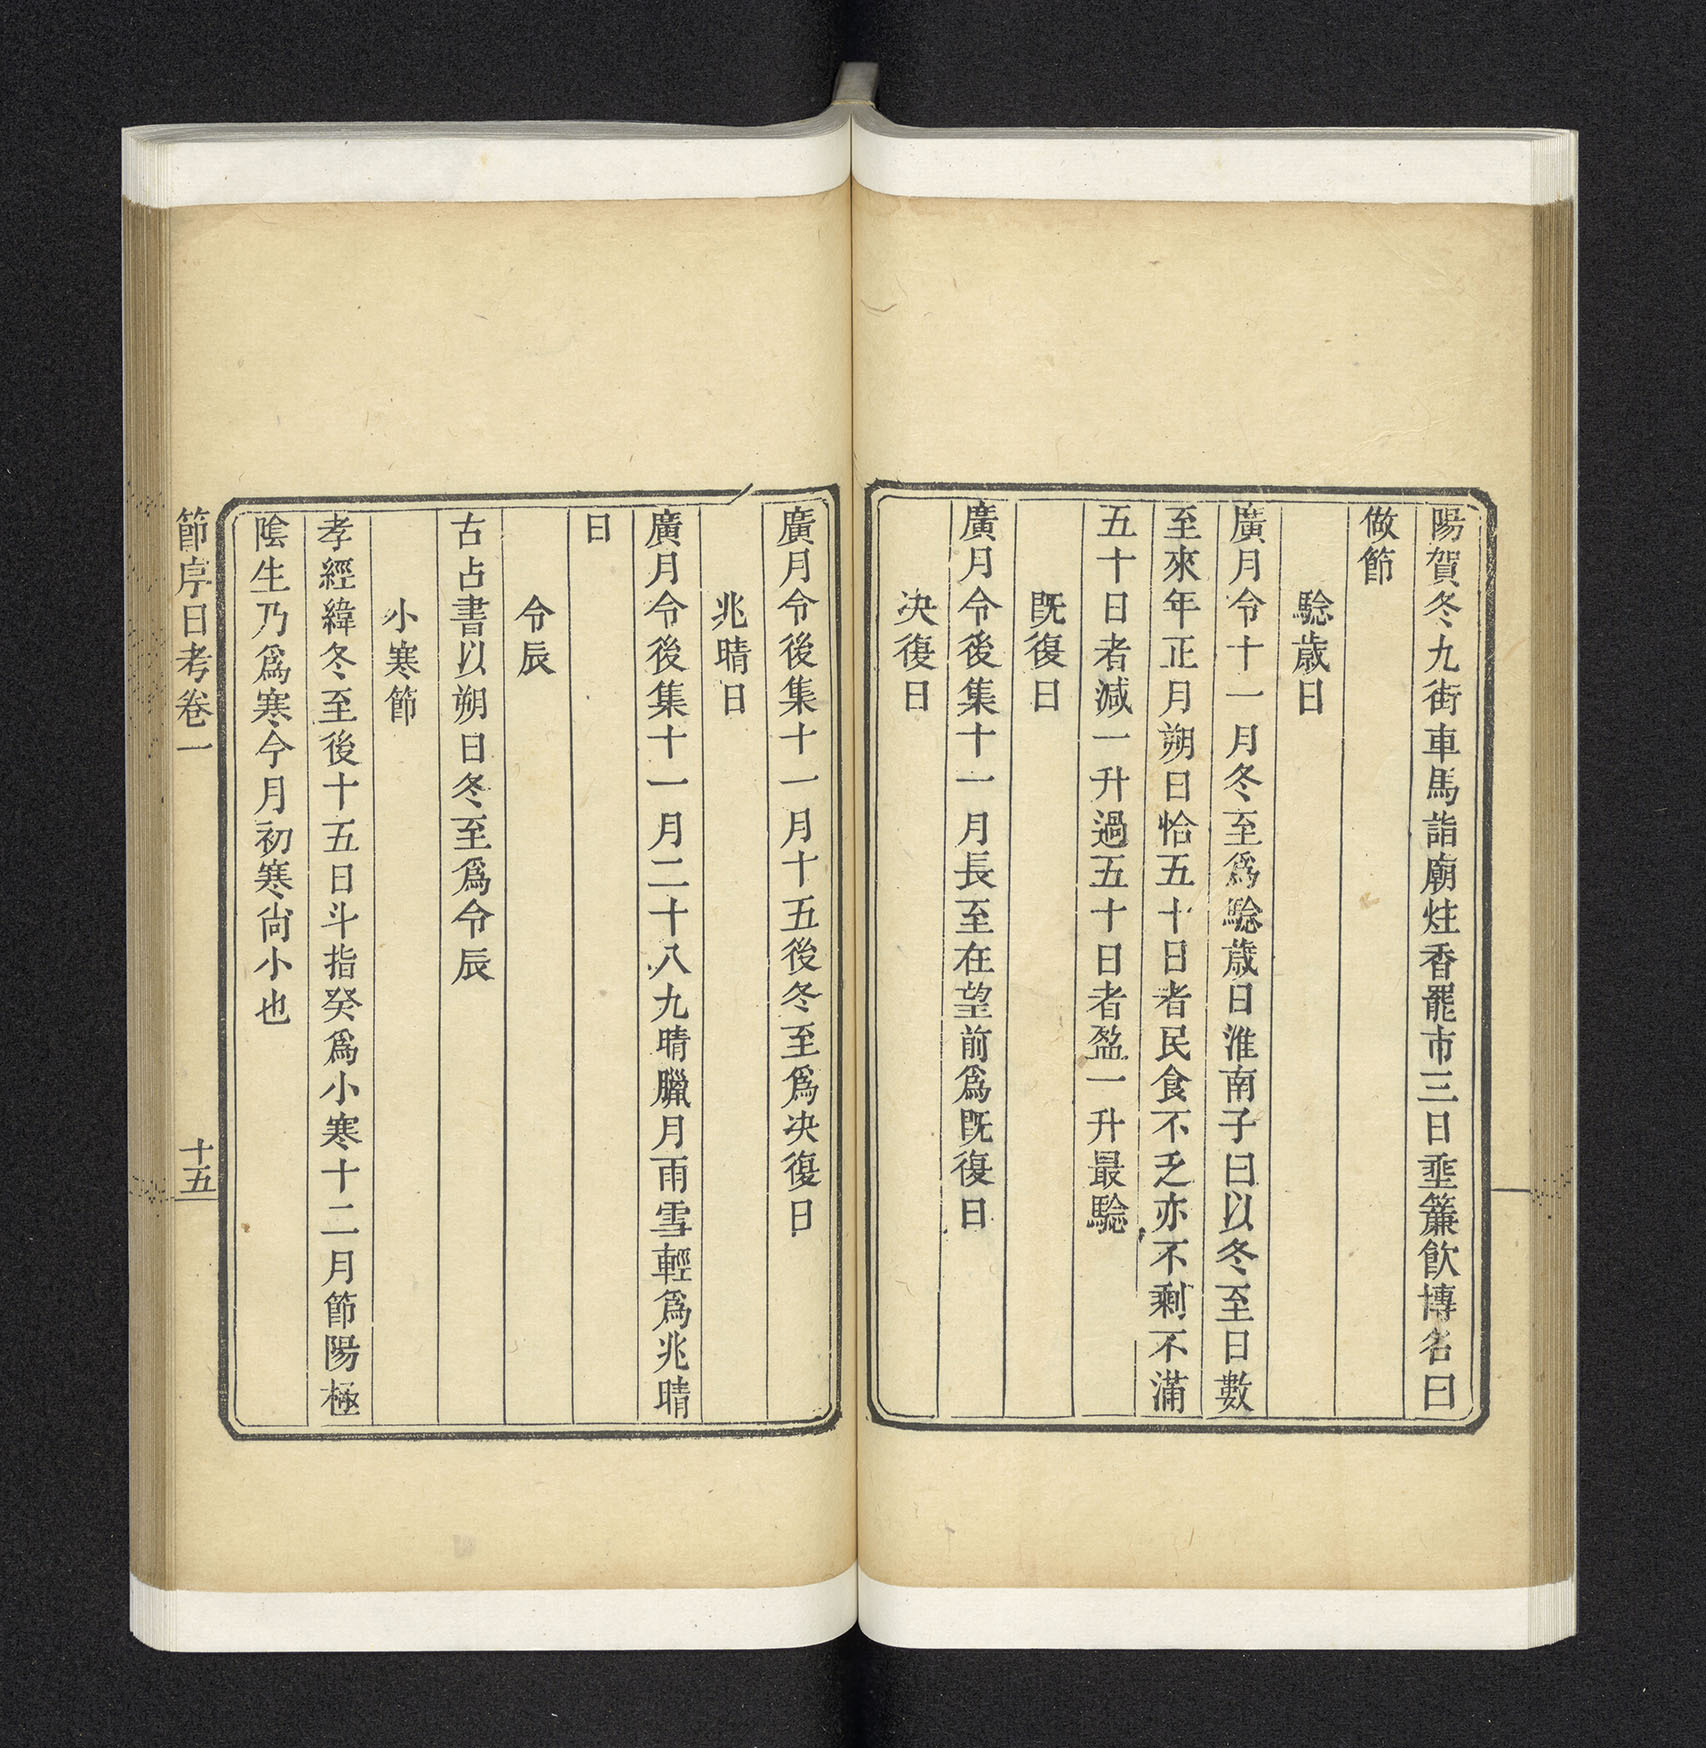 陽賀冬九街車馬詣廟炷香罷市三日埀簾飮博名曰
做節
騐歲日
廣月令十一月冬至爲騐歲日淮南子曰以冬至日數
至來年正月朔日恰五十日者民食不乏亦不剩不滿
五十日者減一升過五十日者盈一升最騐
旣復日
廣月令後集十一月長至在望前爲旣復日
决復日
廣月令後集十一月十五後冬至爲决復日
兆晴日
廣月令後集十一月二十八九晴臘月雨雪輕爲兆晴
日
令辰
古占書以朔日冬至爲令辰
小寒節
孝經緯冬至後十五日斗指癸爲小寒十二月節陽極
隂生乃爲寒今月初寒尙小也
節序日考卷一
十五